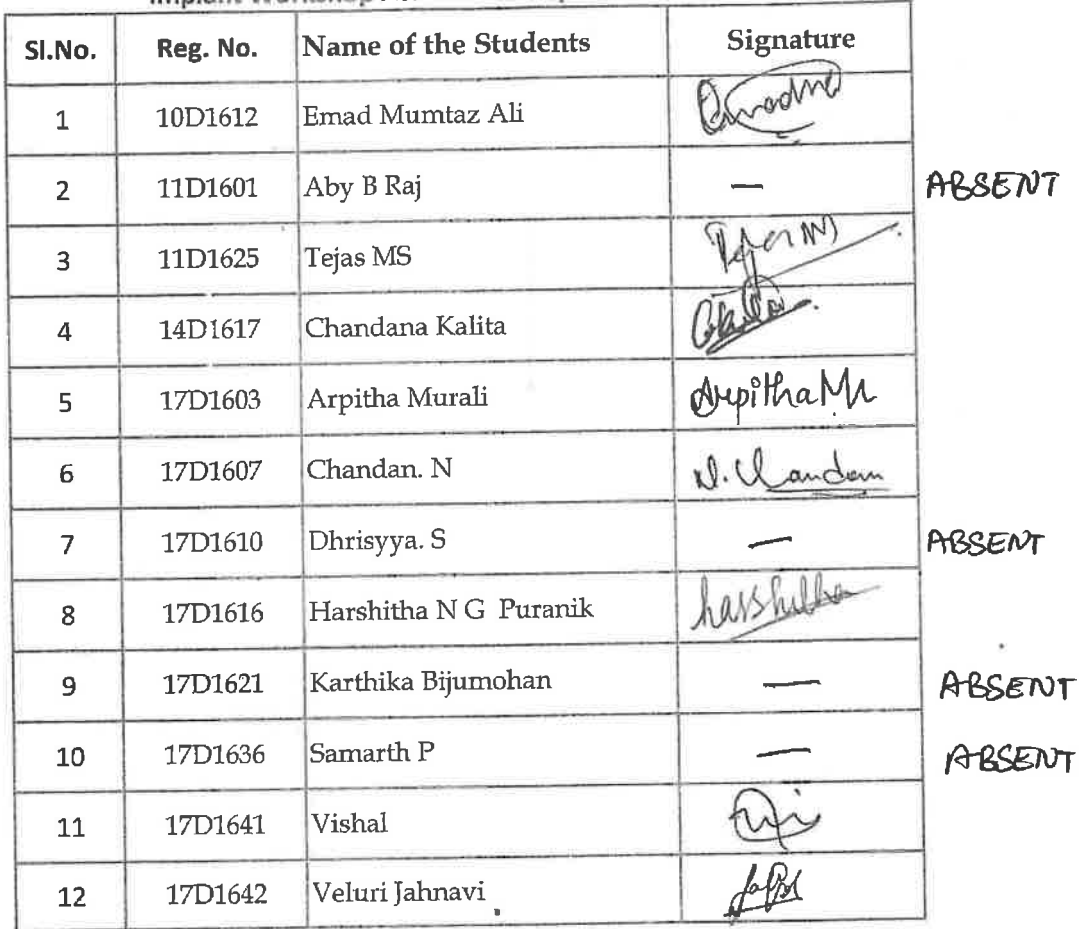 Implant Workshop
Sl.No. Reg. No. Name of the Students Signature
1 10D1612 Emad Mumtaz Ali
2 11D1601 Aby B Raj — ABSENT
3 11D1625 Tejas MS Tejas MS
4 14D1617 Chandana Kalita
5 17D1603 Arpitha Murali Arpitha M
6 17D1607 Chandan. N N. Chandan
7 17D1610 Dhrisyya. S — ABSENT
8 17D1616 Harshitha N G Puranik harshitha
9 17D1621 Karthika Bijumohan — ABSENT
10 17D1636 Samarth P — ABSENT
11 17D1641 Vishal
12 17D1642 Veluri Jahnavi